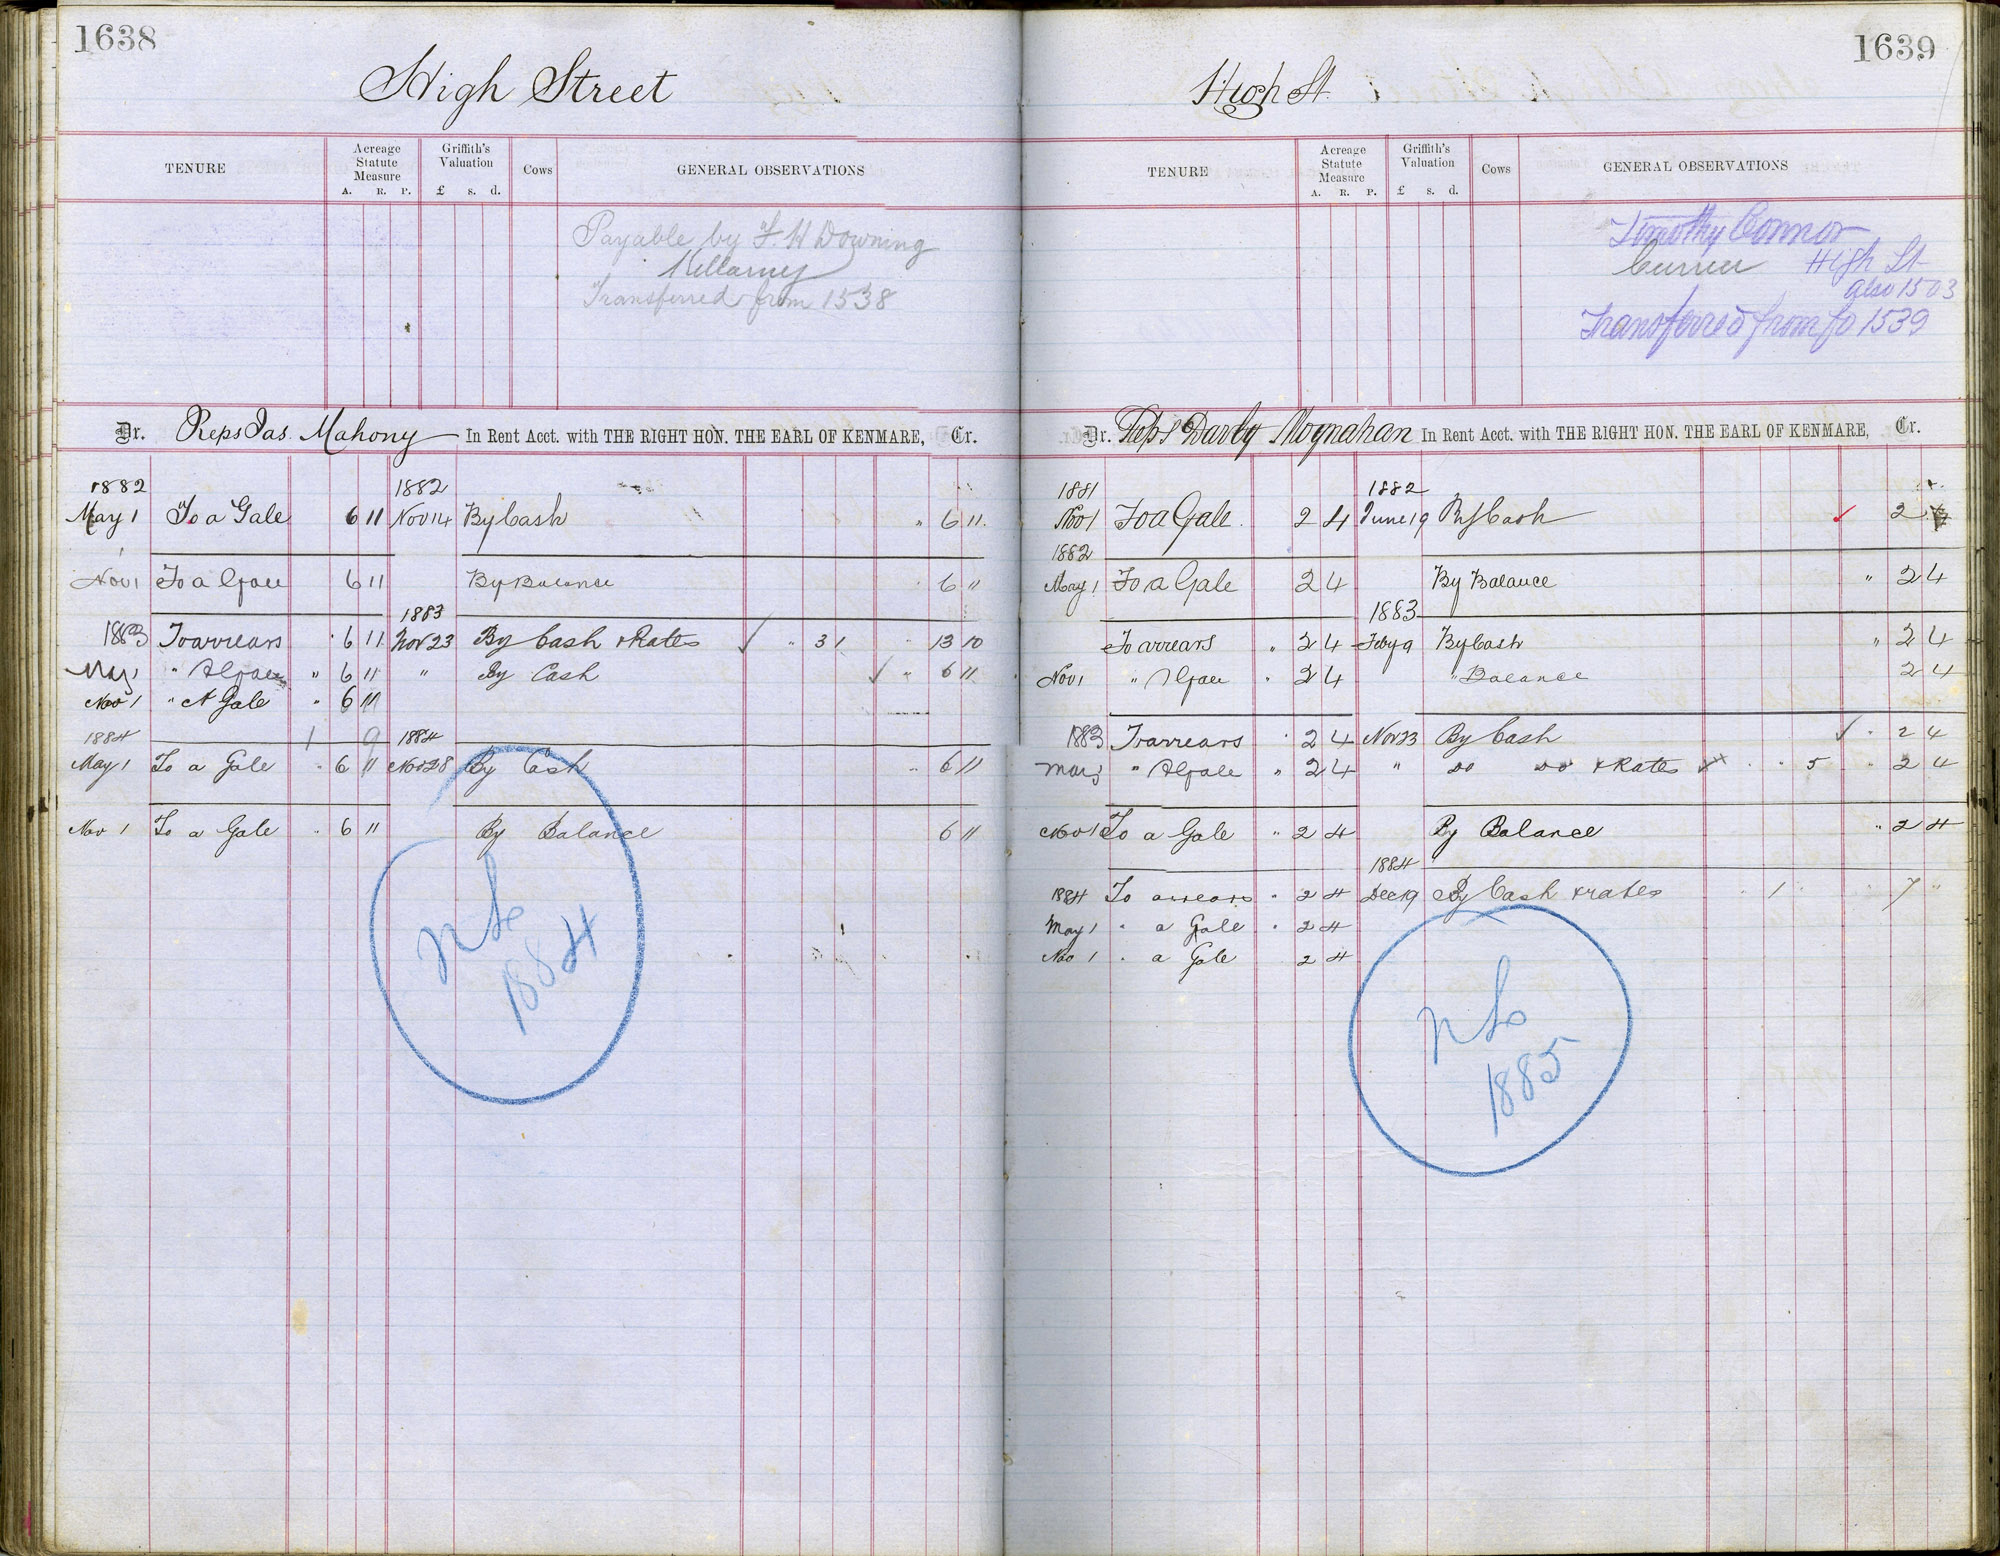 1638
High Street
TENURE Acreage Statute Measure A. R. P. Griffith's Valuation £ s. d. Cows GENERAL OBSERVATIONS
Payable by F. H Downing
Killarney
Transferred from 1538
Dr. Reps Jas. Mahony In Rent Acct. with THE RIGHT HON. THE EARL OF KENMARE, Cr.
1882 1882
May 1 To a Gale 6 11 Nov 14 By Cash " 6 11
Nov 1 To a Gale 6 11 By Balance 6 "
1883
1883 To arrears " 6 11 Nov 23 By Cash & Rates ✓ " 3 1 " 13 10
May 1 " A Gale " 6 11 " By Cash ✓ " 6 11
Nov 1 " A Gale " 6 11
1884 1 9 1884
May 1 To a Gale " 6 11 Nov 28 By Cash " 6 11
Nov 1 To a Gale " 6 11 By Balance 6 11
1884
1639
High St.
TENURE Acreage Statute Measure A. R. P. Griffith's Valuation £ s. d. Cows GENERAL OBSERVATIONS
Timothy Connor
Currier High St
also 1503
Transferred from fo 1539
Dr. Reps Darby Moynahan In Rent Acct. with THE RIGHT HON. THE EARL OF KENMARE, Cr.
1881 1882
Nov 1 To a Gale 2 4 June 19 By Cash ✓ 2
1882
May 1 To a Gale 2 4 By Balance " 2 4
1883
To arrears " 2 4 Feby 9 By Cash " 2 4
Nov 1 " A Gale " 2 4 " Balance 2 4
1883 To arrears " 2 4 Nov 23 By Cash ✓ " 2 4
May " A Gale " 2 4 " Do Do & Rates " " 5 " 2 4
Nov 1 To a Gale " 2 4 By Balance " 2 4
1884
1884 To arrears " 2 4 Dec 19 By Cash & rates " 1 " " 7 "
May 1 " a Gale " 2 4
Nov 1 " a Gale 2 4
1885